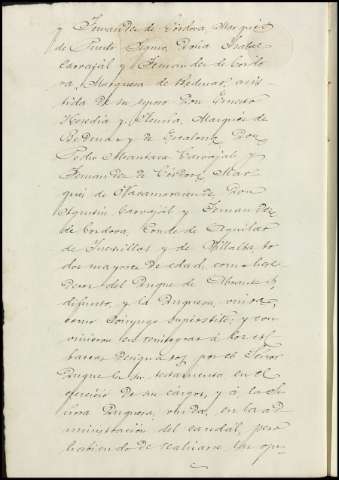 y Fernandez de Córdova, Marqués
de Puerto Seguro, Doña Isabel
Carvajal y Fernandez de Cordo
va, Marquesa de Bedmar, asis
tida de su esposo Don Ernesto
Heredia y Acuña, Marqués de
Bedmar y de Escalona, Don
Pedro Alcantara Carvajal y
Fernandez de Córdova, Mar
qués de Navamorcuende, Don
Agustin Carvajal y Fernandez
de Cordova, Conde de Aguilar
de Inestrillas y de Villalba to
dos mayores de edad, como here
deros del Duque de Abrantes,
difunto, y la Duquesa, viuda,
como cónyuge supérstite, y con
vinieron en reintegrar á los es
baceas designados por el Señor
Duque en su testamento en el
ejercicio de su cargo, y á la Se
ñora Duquesa, viuda, en la ad
ministración del caudal, pero
habiendo de realizarse las ope